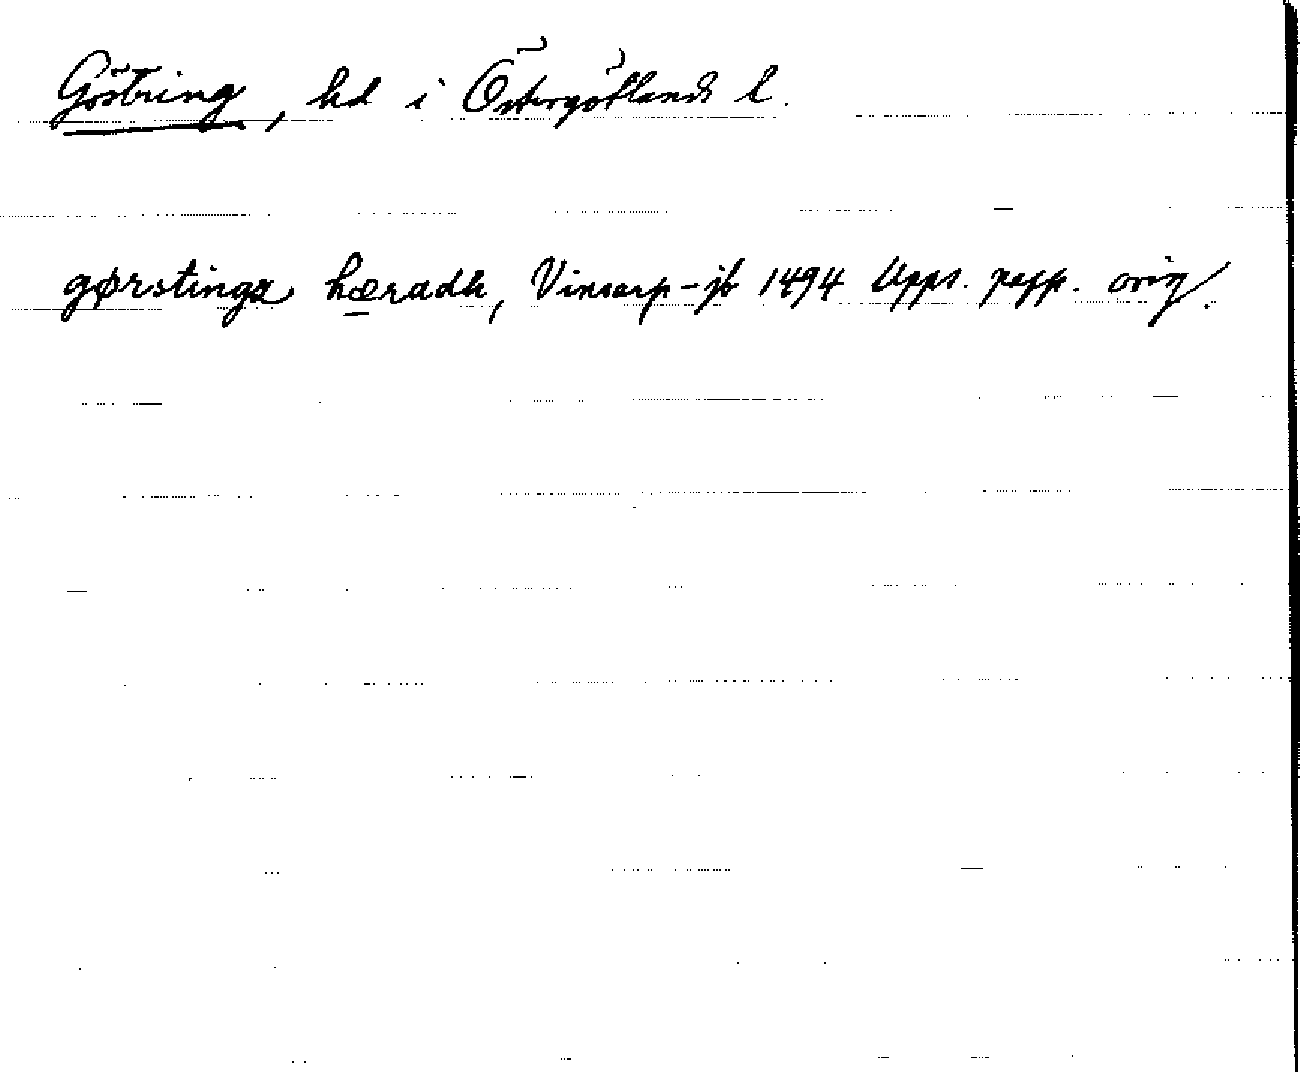 Göstring, hd i Östergötlands l.
gørstinga hæradh, Vinsarp-jb 1494 Upps. papp. orig.